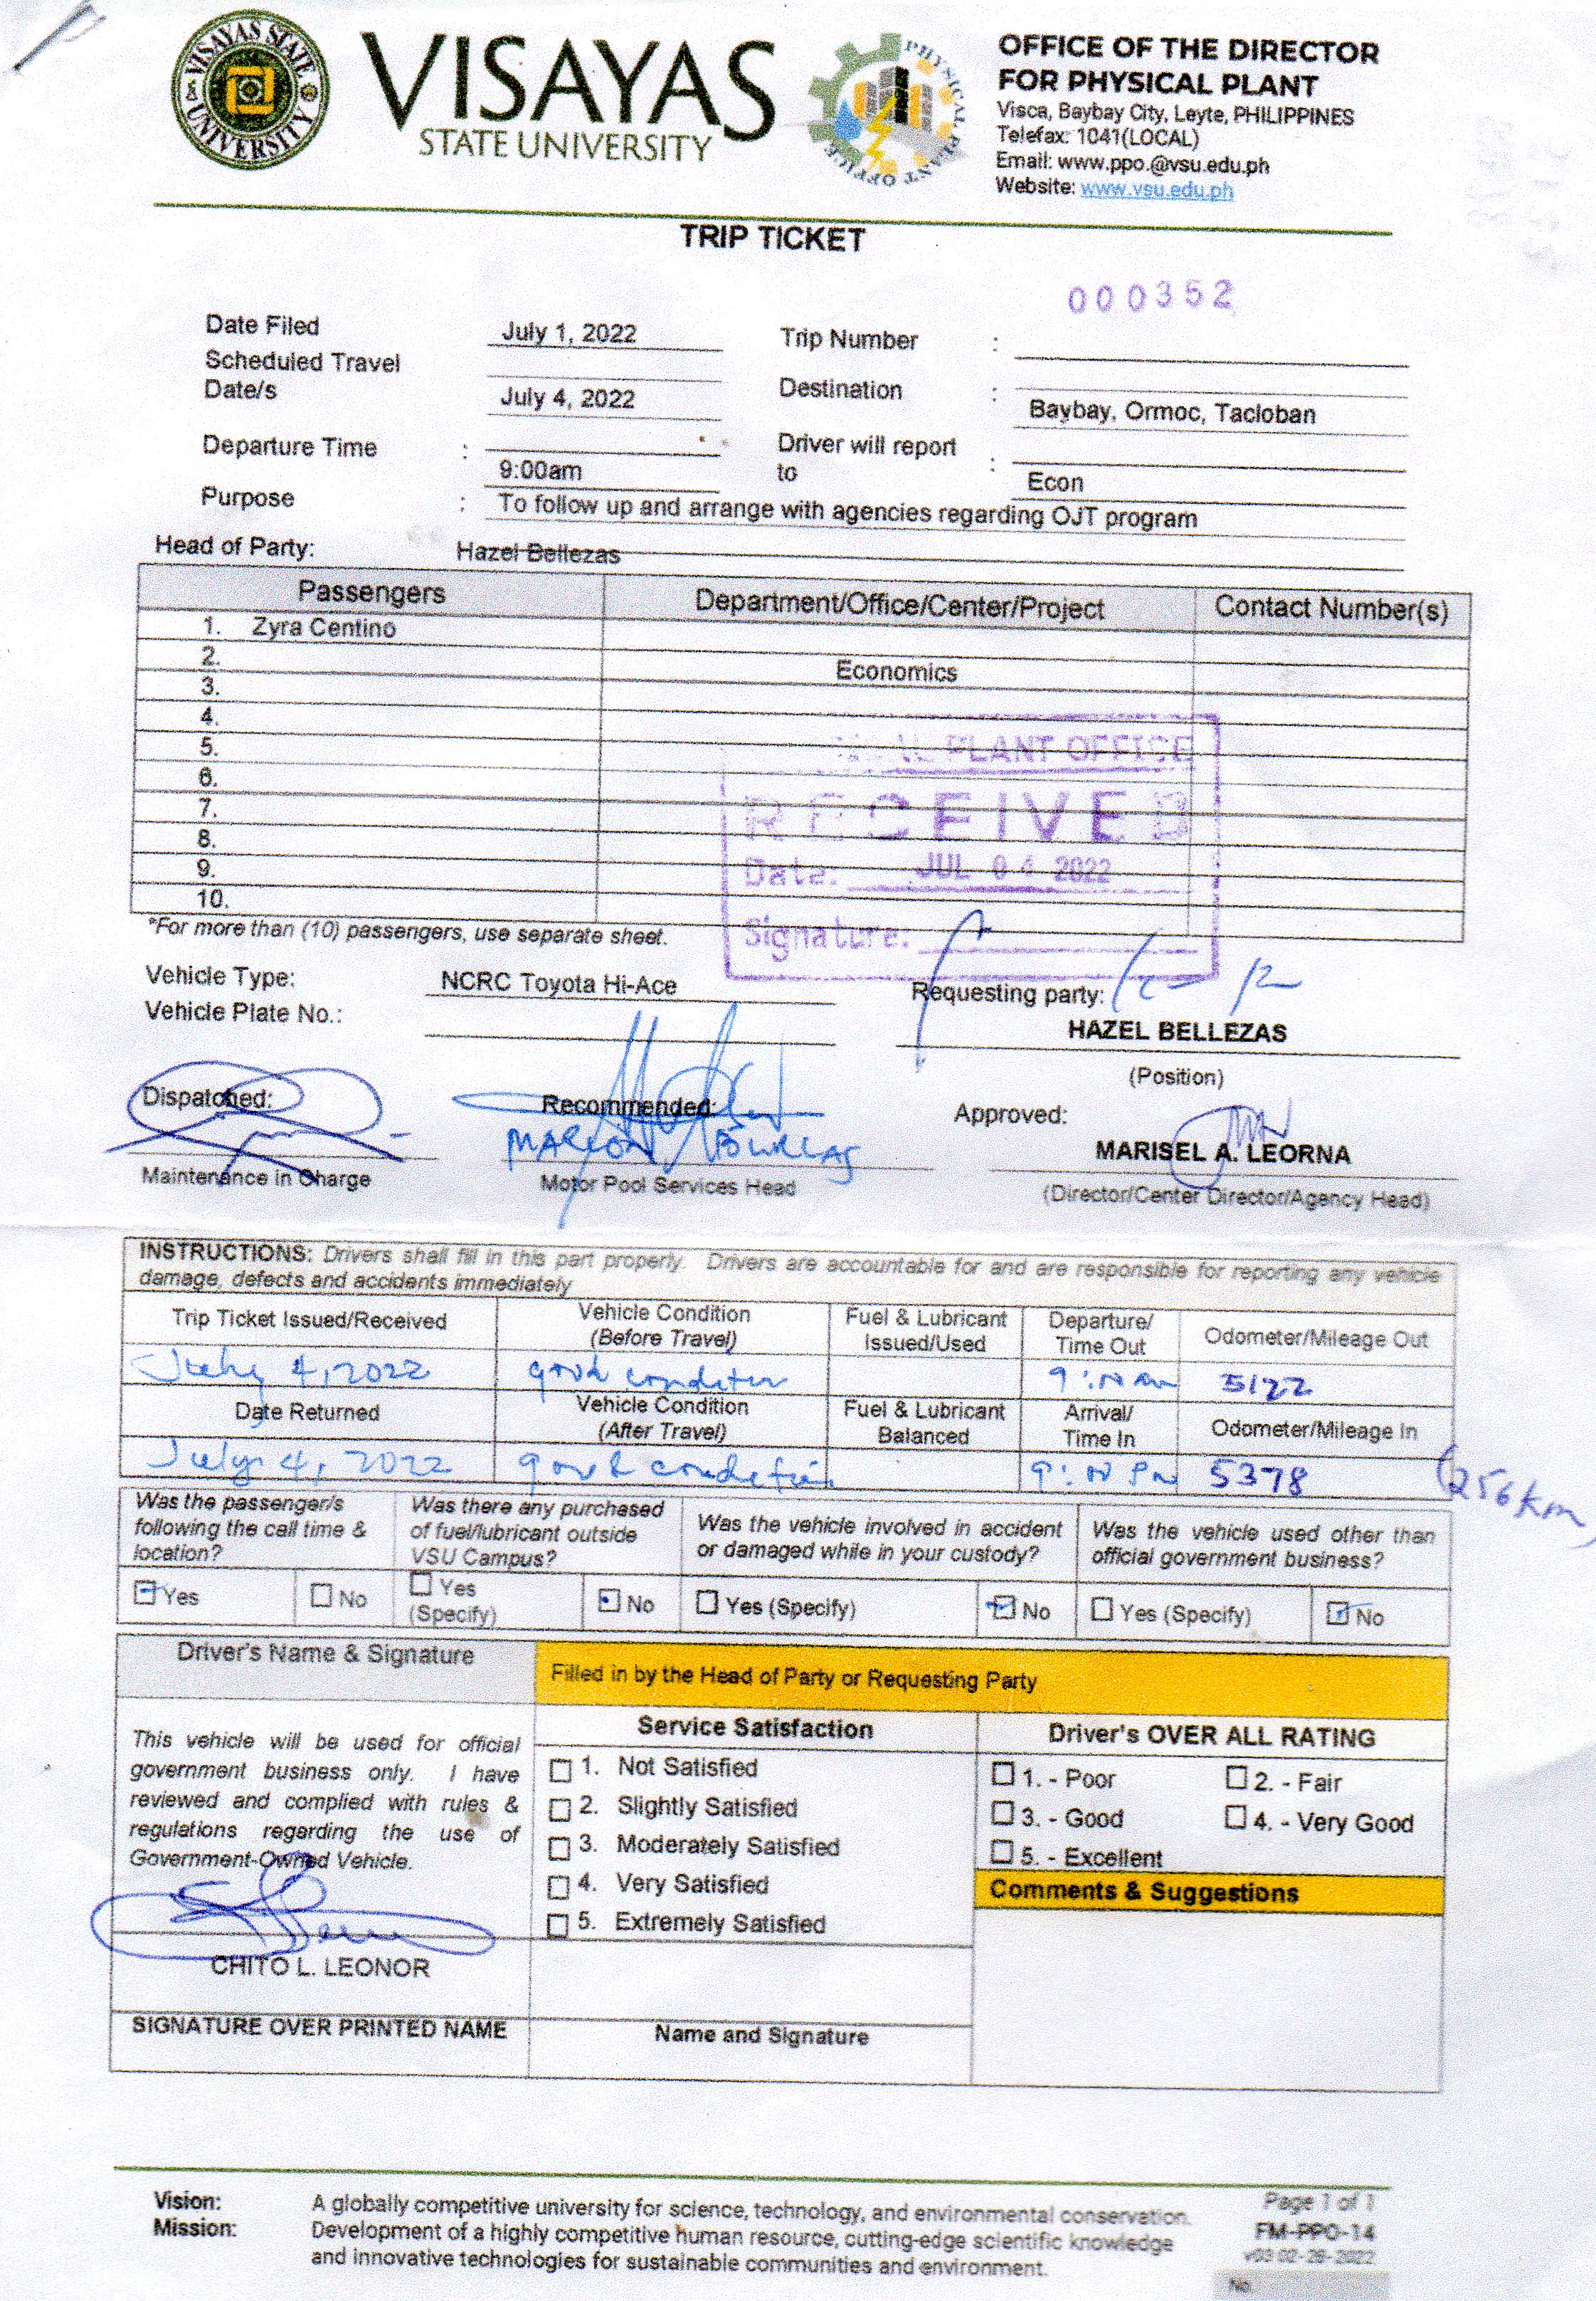 VISAYAS STATE UNIVERSITY
VISAYAS
STATE UNIVERSITY
PHYSICAL PLANT OFFICE
OFFICE OF THE DIRECTOR
FOR PHYSICAL PLANT
Visca, Baybay City, Leyte, PHILIPPINES
Telefax: 1041(LOCAL)
Email: www.ppo.@vsu.edu.ph
Website: www.vsu.edu.ph
TRIP TICKET
000352
Date Filed July 1, 2022 Trip Number :
Scheduled Travel
Date/s July 4, 2022 Destination : Baybay, Ormoc, Tacloban
Departure Time : 9:00am Driver will report to : Econ
Purpose : To follow up and arrange with agencies regarding OJT program
Head of Party: Hazel Bellezas
Passengers Department/Office/Center/Project Contact Number(s)
1. Zyra Centino
2. Economics
3.
4.
5.
6.
7.
8.
9.
10.
PLANT OFFICE
RECEIVED
Date: JUL 04 2022
Signature.
*For more than (10) passengers, use separate sheet.
Vehicle Type: NCRC Toyota Hi-Ace Requesting party:
Vehicle Plate No.: HAZEL BELLEZAS
(Position)
Dispatched: Recommended: Approved:
MARLON MARISEL A. LEORNA
Maintenance in Charge Motor Pool Services Head (Director/Center Director/Agency Head)
INSTRUCTIONS: Drivers shall fill in this part properly. Drivers are accountable for and are responsible for reporting any vehicle
damage, defects and accidents immediately
Trip Ticket Issued/Received Vehicle Condition (Before Travel) Fuel & Lubricant Issued/Used Departure/ Time Out Odometer/Mileage Out
July 4, 2022 good condition 9:00 am 5122
Date Returned Vehicle Condition (After Travel) Fuel & Lubricant Balanced Arrival/ Time In Odometer/Mileage In
July 4, 2022 good condition 9:00 Pm 5378 (256km
Was the passenger/s following the call time & location? Was there any purchased of fuel/lubricant outside VSU Campus? Was the vehicle involved in accident or damaged while in your custody? Was the vehicle used other than official government business?
Yes No Yes (Specify) No Yes (Specify) No Yes (Specify) No
Driver's Name & Signature Filled in by the Head of Party or Requesting Party
This vehicle will be used for official
government business only. I have
reviewed and complied with rules &
regulations regarding the use of
Government-Owned Vehicle.
CHITO L. LEONOR
SIGNATURE OVER PRINTED NAME
Service Satisfaction
1. Not Satisfied
2. Slightly Satisfied
3. Moderately Satisfied
4. Very Satisfied
5. Extremely Satisfied
Name and Signature
Driver's OVER ALL RATING
1. - Poor 2. - Fair
3. - Good 4. - Very Good
5. - Excellent
Comments & Suggestions
Vision: A globally competitive university for science, technology, and environmental conservation.
Mission: Development of a highly competitive human resource, cutting-edge scientific knowledge
and innovative technologies for sustainable communities and environment.
Page 1 of 1
FM-PPO-14
v03 02-28-2022
No.